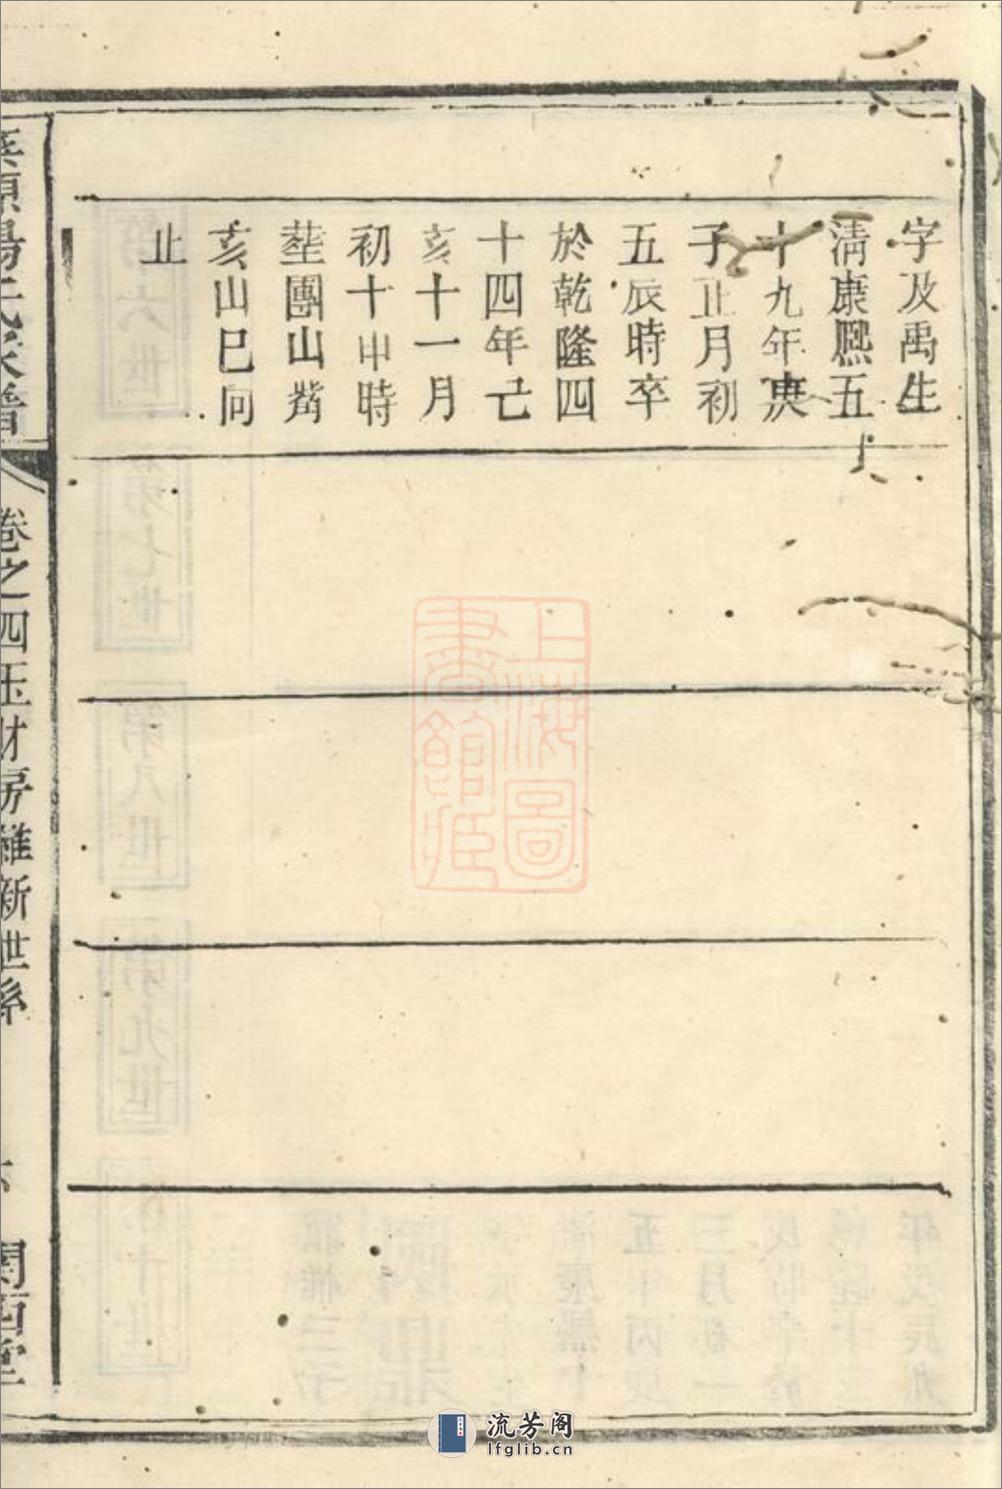 字及禹生
淸康熈五
十九年庚
子正月初
五辰時卒
於乾隆四
十四年己
亥十一月
初十申時
塟團山觜
亥山巳向
止
楊氏家譜
卷之四玉財房維新世系
關西堂
上海圖
書館藏
流芳阁
lfglib.cn